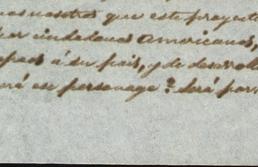 nosotros que este proyecto
ciudadanos Americanos,
á su pais, y de desarrolla
ese personage? Será por